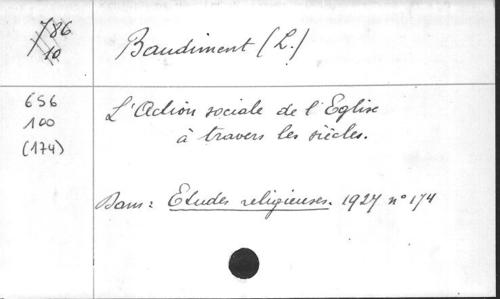 786
10
Baudiment (L.)
656
100
(174)
L'Action sociale de l'Eglise
à travers les siècles.
Dans : Etudes religieuses. 1927 n° 174